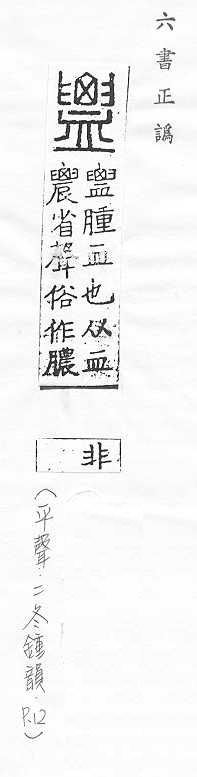 六書正譌
𧗕
𧗕腫血也从血
農省聲俗作膿
非
(平聲.二冬鍾韻.P.12)